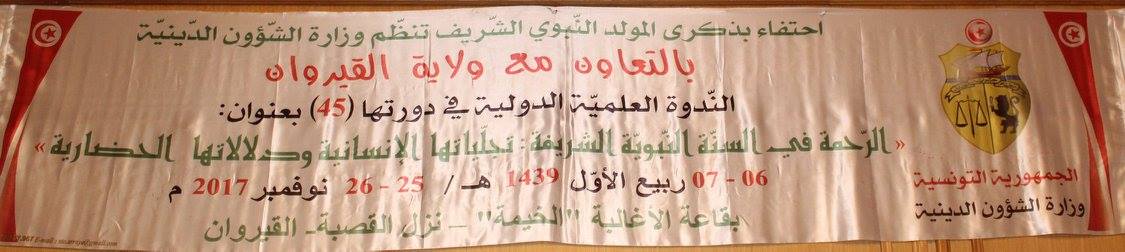 احتفاء بذكرى المولد النّبوي الشّريف تنظّم وزارة الشّؤون الدّينيّة
بالتعاون مع ولاية القيروان
النّدوة العلميّة الدولية في دورتها (45) بعنوان:
« الرّحمة في السنّة النّبويّة الشّريفة: تجلّياتها الإنسانية ودلالاتها الحضارية »
06 - 07 ربيع الأوّل 1439 هـ / 25 - 26 نوفمبر 2017 م
بقاعة الأغالبة "الخيمة" - نزل القصبة- القيروان
الجمهورية التونسية
وزارة الشّؤون الدينية